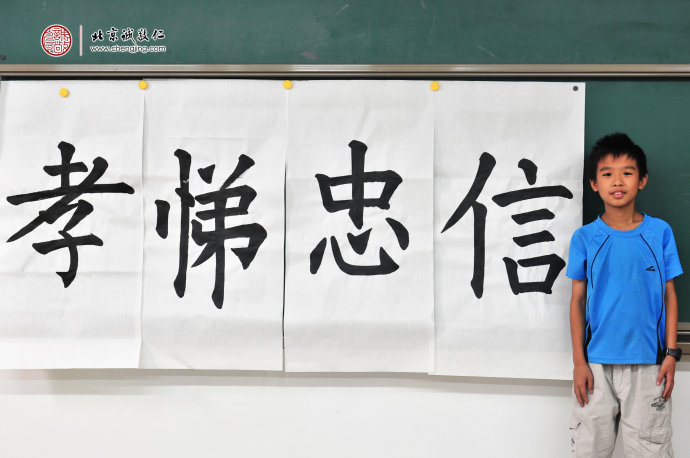 北京诚敬仁
www.chengjing.com
孝悌忠信